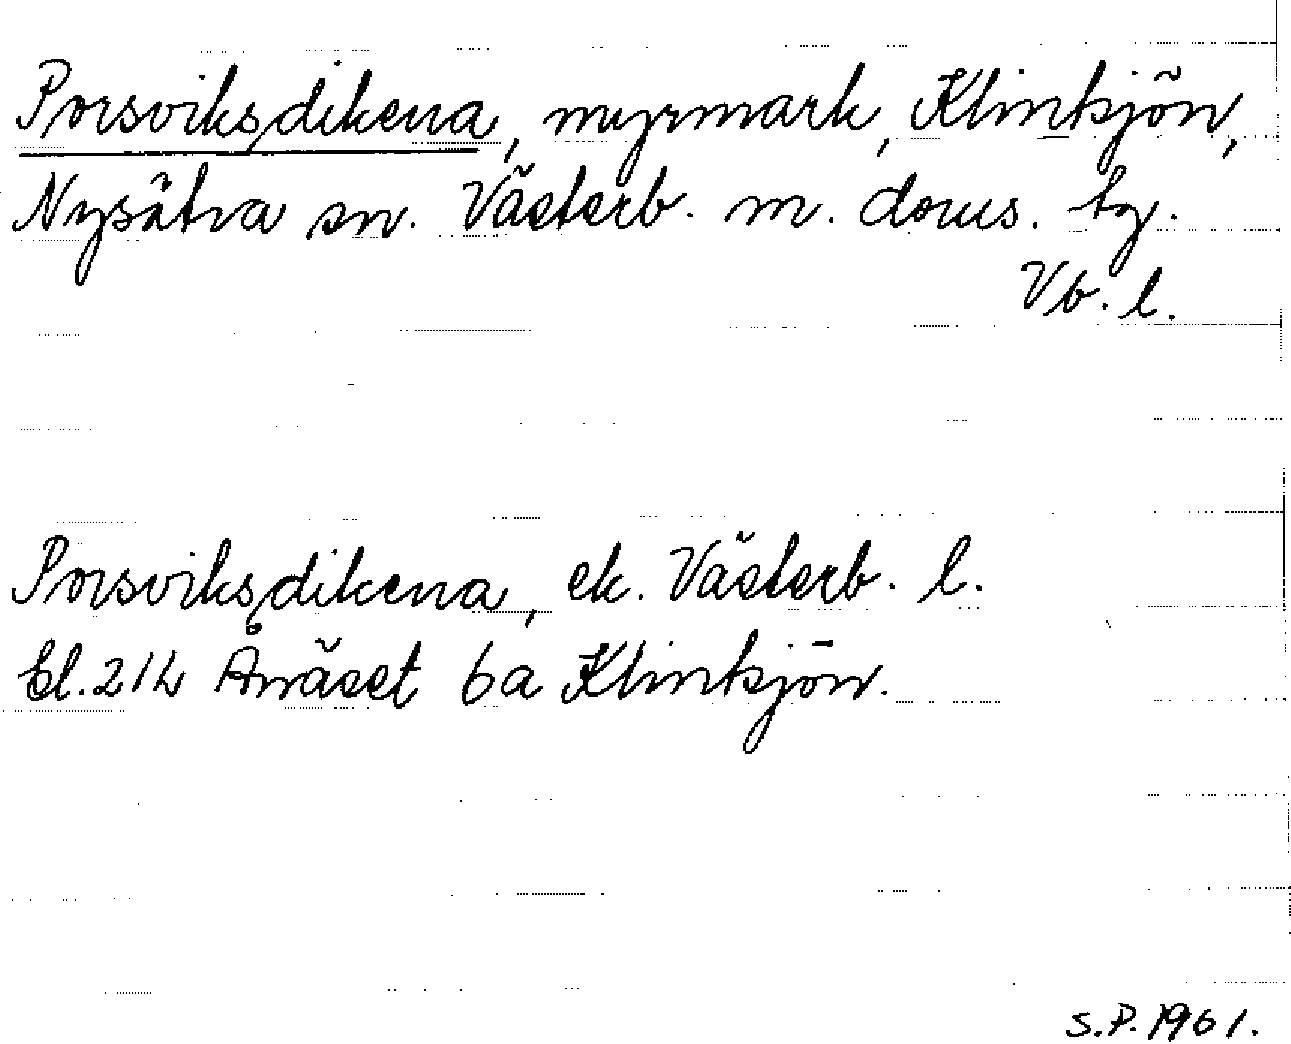 Porsviksdikena, myrmark, Klinksjön,
Nysätra sn. Västerb. m. doms. tg.
Vb. l.
Porsviksdikena, ek. Västerb. l.
bl. 21L Ånäset 6a Klinksjön.
S.P. 1961.